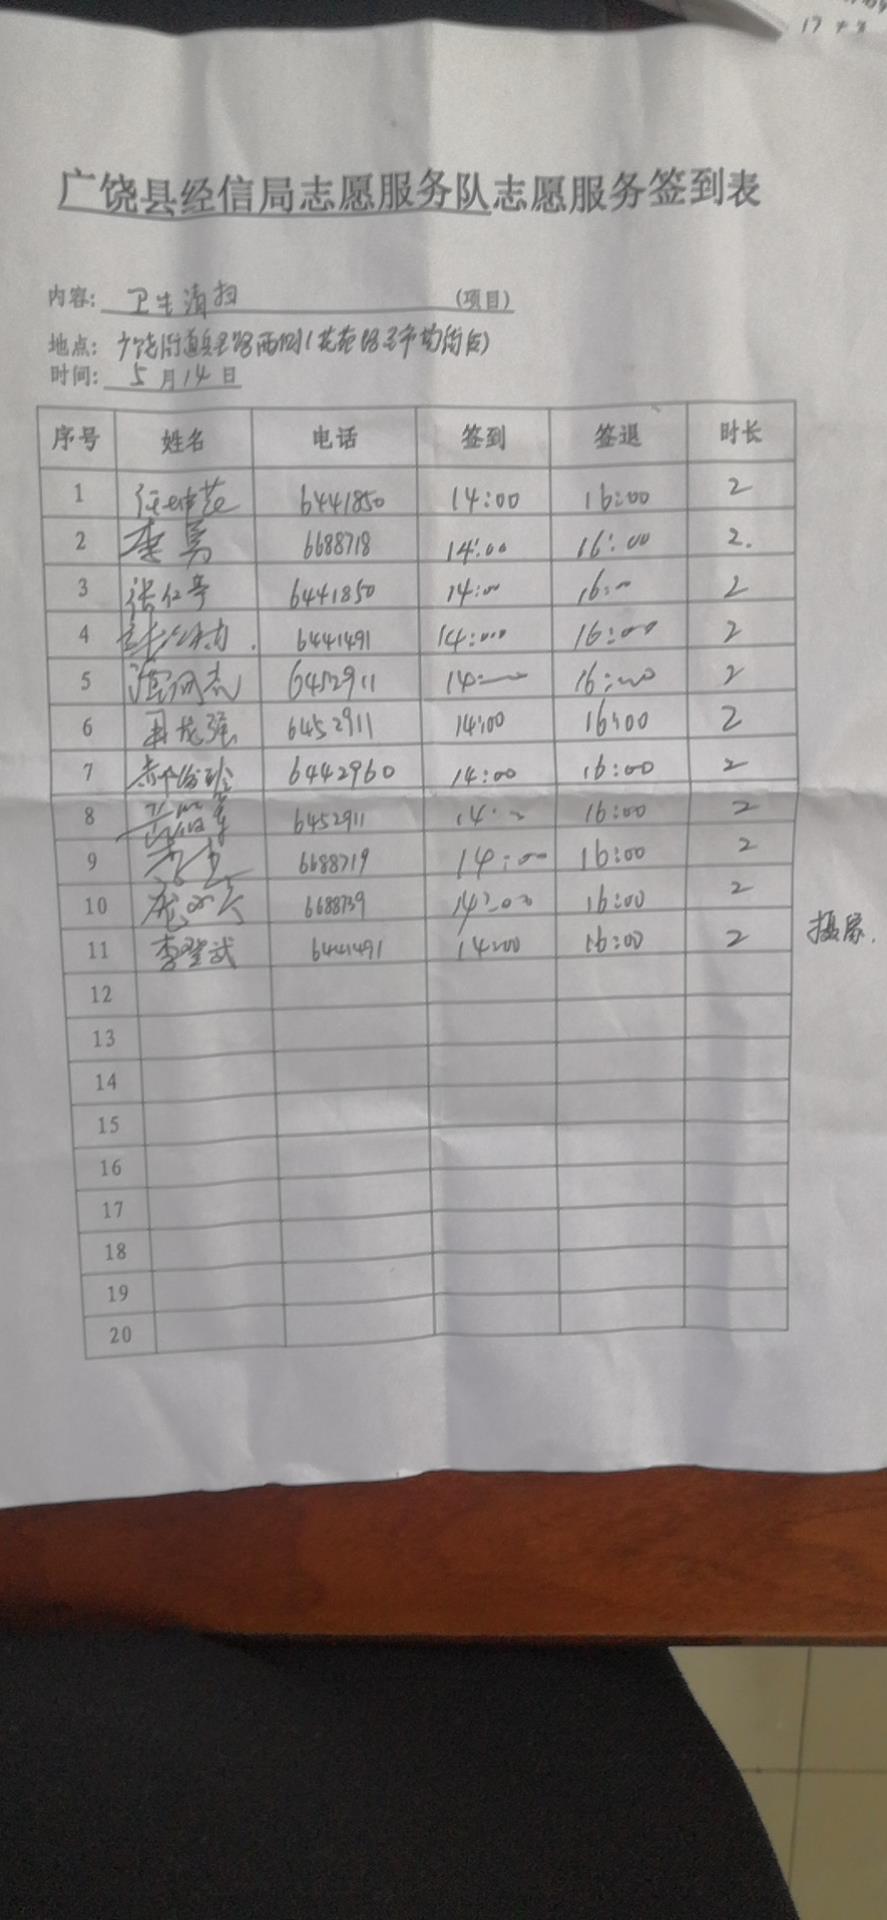 广饶县经信局志愿服务队志愿服务签到表
内容: 卫生清扫 (项目)
地点: 广饶街道
时间: 5月14日
序号 姓名 电话 签到 签退 时长
1 6441850 14:00 16:00 2
2 李勇 6688718 14:00 16:00 2.
3 张仁亭 6441850 14:00 16:00 2
4 6441491 14:00 16:00 2
5 6452911 14:00 16:00 2
6 聂龙强 6452911 14:00 16:00 2
7 6442960 14:00 16:00 2
8 6452911 14: 16:00 2
9 6688719 14:00 16:00 2
10 6688739 14:00 16:00 2
11 李登武 6441491 14:00 16:00 2 摄像.
12
13
14
15
16
17
18
19
20